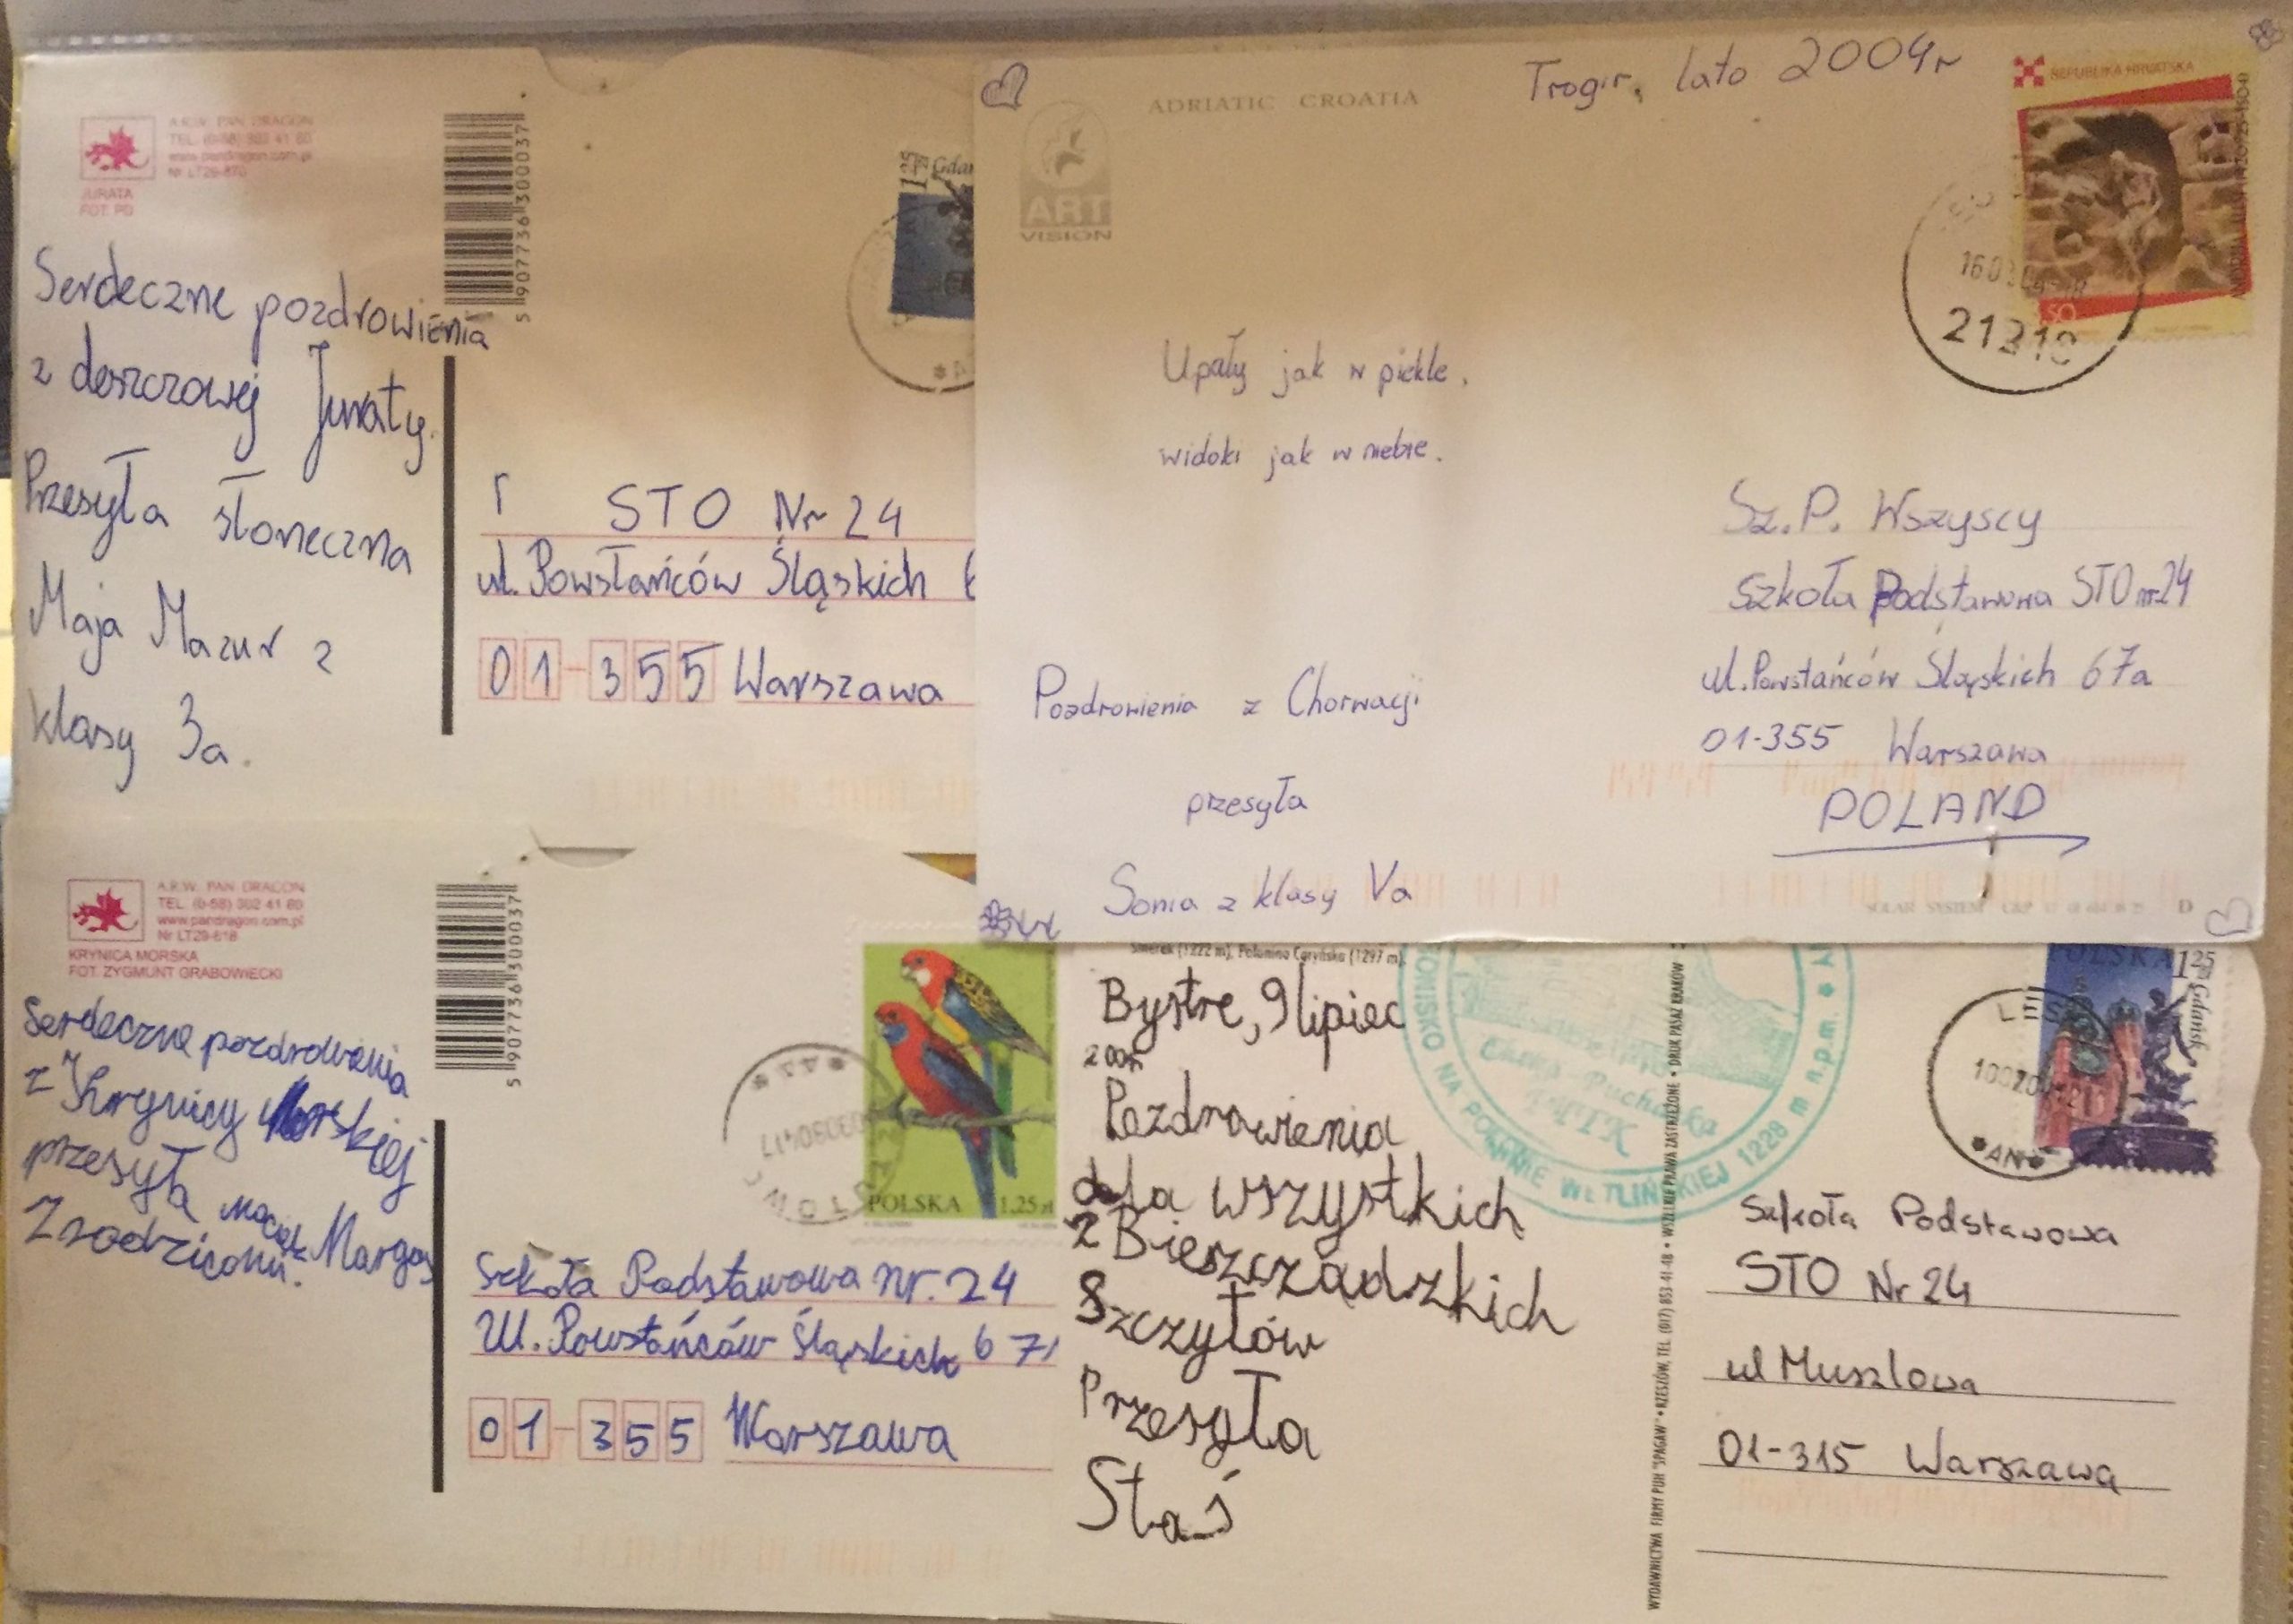 A.R.W. PAN DRAGON
TEL. (0-58) 302 41 60
www.pandragon.com.pl
Nr LT29-870
JURATA
FOT. PD
5 907736 300037
Serdeczne pozdrowienia
z deszczowej Juraty.
Przesyła słoneczna
Maja Mazur z
klasy 3a.
STO Nr 24
ul. Powstańców Śląskich 6
01-355 Warszawa
ADRIATIC CROATIA
ART
VISION
Trogir, lato 2004r
REPUBLIKA HRVATSKA
Upały jak w piekle,
widoki jak w niebie.
Pozdrowienia z Chorwacji
przesyła
Sonia z klasy Va
Sz.P. Wszyscy
Szkoła Podstawowa STO nr 24
ul. Powstańców Śląskich 67a
01-355 Warszawa
POLAND
SOLAR SYSTEM
D
A.R.W. PAN DRAGON
TEL. (0-58) 302 41 60
www.pandragon.com.pl
Nr LT29-618
KRYNICA MORSKA
FOT. ZYGMUNT GRABOWIECKI
5 907736 300037
Serdeczne pozdrowienia
z Krynicy Morskiej
przesyła Maciek Margas
Z rodzicami.
POLSKA 1,25 zł
Szkoła Podstawowa nr. 24
Ul. Powstańców Śląskich 67
01-355 Warszawa
Smerek (1222 m), Połonina Caryńska (1297 m).
Bystre, 9 lipiec
Pozdrowienia
dla wszystkich
z Bieszczadzkich
Szczytów
Przesyła
Staś
NA POŁONINIE WETLIŃSKIEJ 1228 m n.p.m.
PTTK
WYDAWNICTWA FIRMY PUH "SPAGAW" • RZESZÓW, TEL. (017) 853 41 48 • WSZELKIE PRAWA ZASTRZEŻONE • DRUK PASAŻ KRAKÓW
POLSKA 1,25 zł
Gdańsk
Szkoła Podstawowa
STO Nr 24
ul Muszlowa
01-315 Warszawa